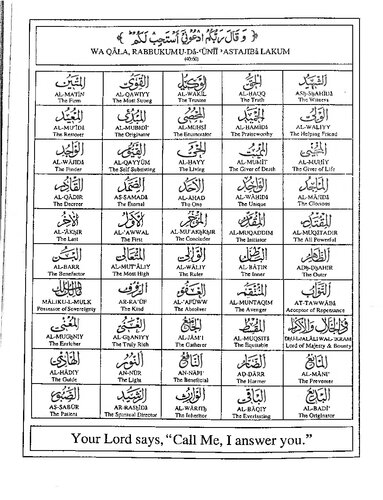 وَقَالَ رَبُّكُمُ ادْعُونِي أَسْتَجِبْ لَكُمْ
WA QÂLA, RABBUKUMU-DÂ-'ÛNÎÎ 'ASTAJIBÂ LAKUM
(40:60)
الشهيد الحق الوكيل القوي المتين
AL-MATÎN AL-QAWIYY AL-WAKÎL AL-HAQQ ASH-SHAHÎDI
The Firm The Most Strong The Trustee The Truth The Witness
الولي الحميد المحصي المبدئ المعيد
AL-MU'ÎDI AL-MUBDI' AL-MUHSÎ AL-HAMÎDI AL-WALIYY
The Restorer The Originator The Enumerator The Praiseworthy The Helping Friend
المحيي المميت الحي القيوم الواجد
AL-WÂJIDI AL-QAYYÛM AL-HAYY AL-MUMÎT AL-MUHIY
The Finder The Self Subsisting The Living The Giver of Death The Giver of Life
الماجد الواحد الأحد الصمد القادر
AL-QÂDIR AS-SAMADI AL-ÂHAD AL-WÂHIDI AL-MÂJIDI
The Decreer The Eternal The One The Unique The Glorious
المقتدر المقدم المؤخر الأول الآخر
AL-'ÂKHIR AL-'AWWAL AL-MU'AKHKHIR AL-MUQADDIM AL-MUQTADIR
The Last The First The Concluder The Initiator The All Powerful
الظاهر الباطن الوالي المتعالي البر
AL-BARR AL-MUT'ÂLIY AL-WÂLIY AL-BÂTIN ADH-DHÂHIR
The Benefactor The Most High The Ruler The Inner The Outer
التواب المنتقم العفو الرؤوف مالك الملك
MÂLIKU-L-MULK AR-RA'ÛF AL-'AFÛWW AL-MUNTAQIM AT-TAWWÂBI
Possessor of Sovereignty The Kind The Absolver The Avenger Acceptor of Repentance
ذو الجلال والإكرام المقسط الجامع الغني المغني
AL-MUGHNIY AL-GHANIYY AL-JÂMI'I AL-MUQSITI DHU-L-JALÂLI WAL-IKRAM
The Enricher The Truly Rich The Gatherer The Equitable Lord of Majesty & Bounty
المانع الضار النافع النور الهادي
AL-HÂDIY AN-NÛR AN-NÂFI' AD-DÂRR AL-MÂNI'
The Guide The Light The Beneficial The Harmer The Preventer
البديع الباقي الوارث الرشيد الصبور
AS-SABÛR AR-RASHÎDI AL-WÂRITH AL-BÂQIY AL-BADÎ'
The Patient The Spiritual Director The Inheritor The Everlasting The Originator
Your Lord says, "Call Me, I answer you."